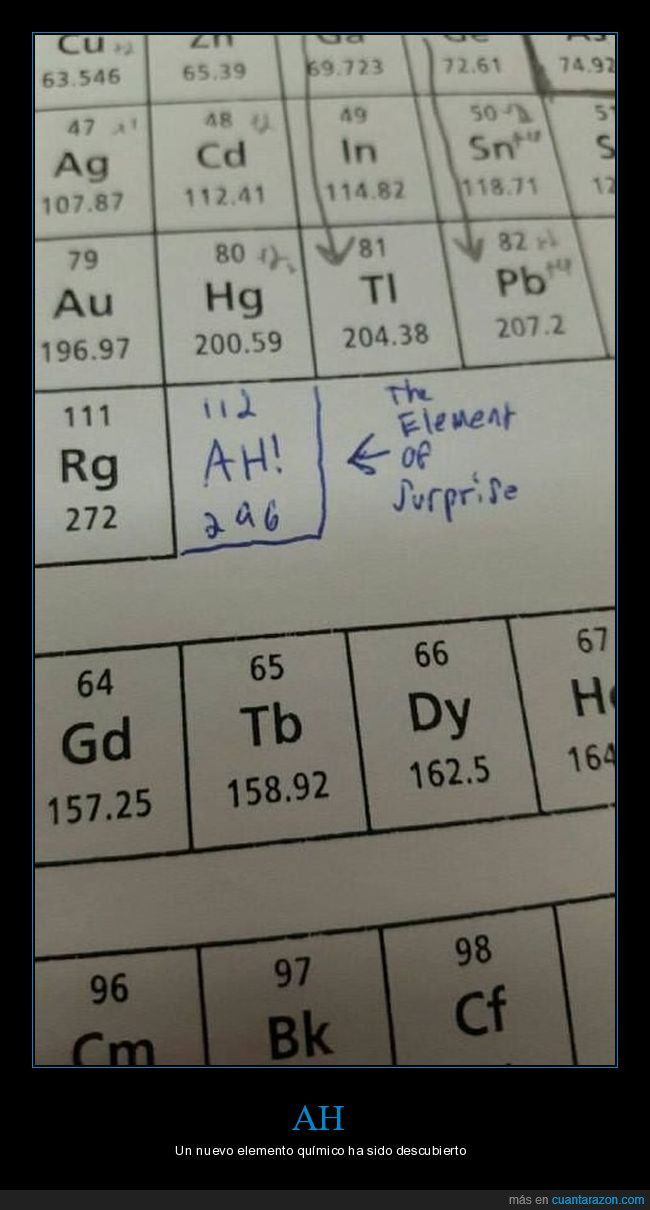 Cu +2 Zn Ga Ge As
63.546 65.39 69.723 72.61 74.92
47 +1 48 49 50 51
Ag Cd In Sn+4 S
107.87 112.41 114.82 118.71 12
79 80 81 82
Au Hg Tl Pb+4
196.97 200.59 204.38 207.2
111 112 The
Rg AH! Element
272 296 of
Surprise
64 65 66 67
Gd Tb Dy Ho
157.25 158.92 162.5 164
96 97 98
Cm Bk Cf
AH
Un nuevo elemento químico ha sido descubierto
más en cuantarazon.com